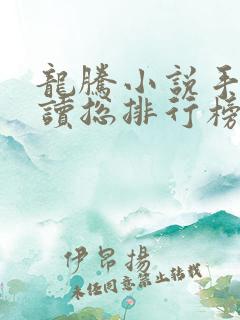 龍騰小說手
讀总排行榜
伊昂揚
未经同意禁止转载